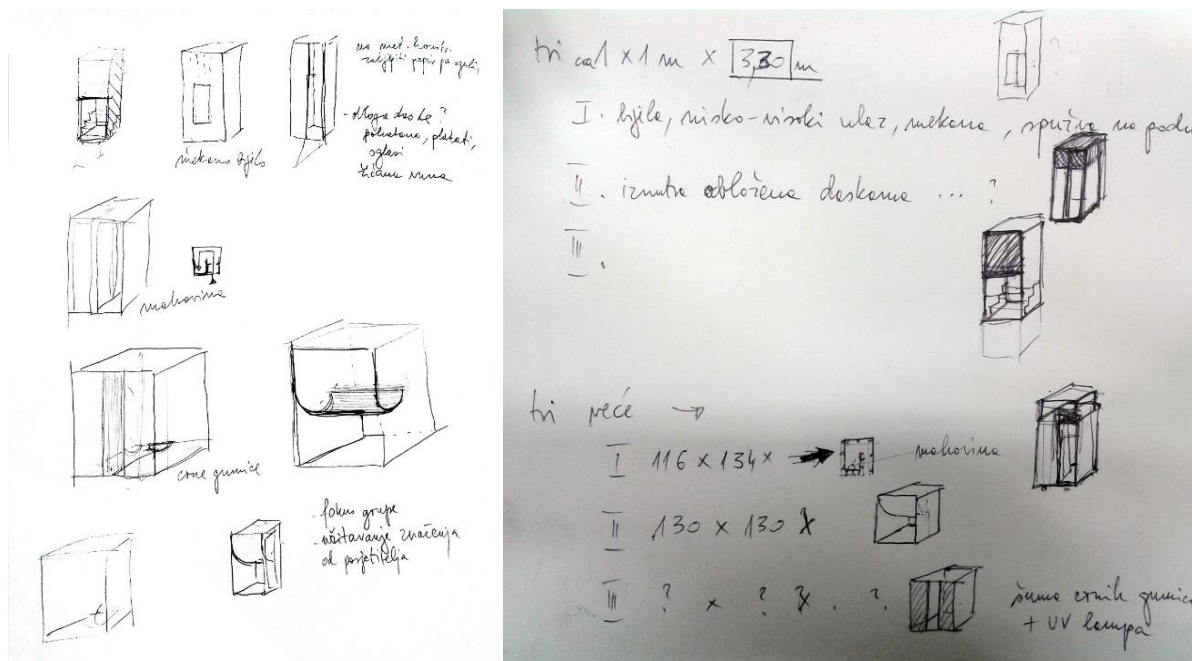 na met. konstr.
zalijepiti papir pa
- obloga daske?
pohabana, plakati,
oglasi
žičana vuna
mekano bijelo
mahovina
crne gumice
- fokus grupe
- učitavanje značenja
od posjetitelja
tri cca 1 x 1 m x 3,30 m
I. bijela, nisko-visoki ulaz, mekana, spužva na podu
II. iznutra obložena daskama ... ?
III.
tri veće →
I 116 x 134 x → mahovina
II 130 x 130 x
III ? x ? x . ?
šuma crnih gumica
+ UV lampa